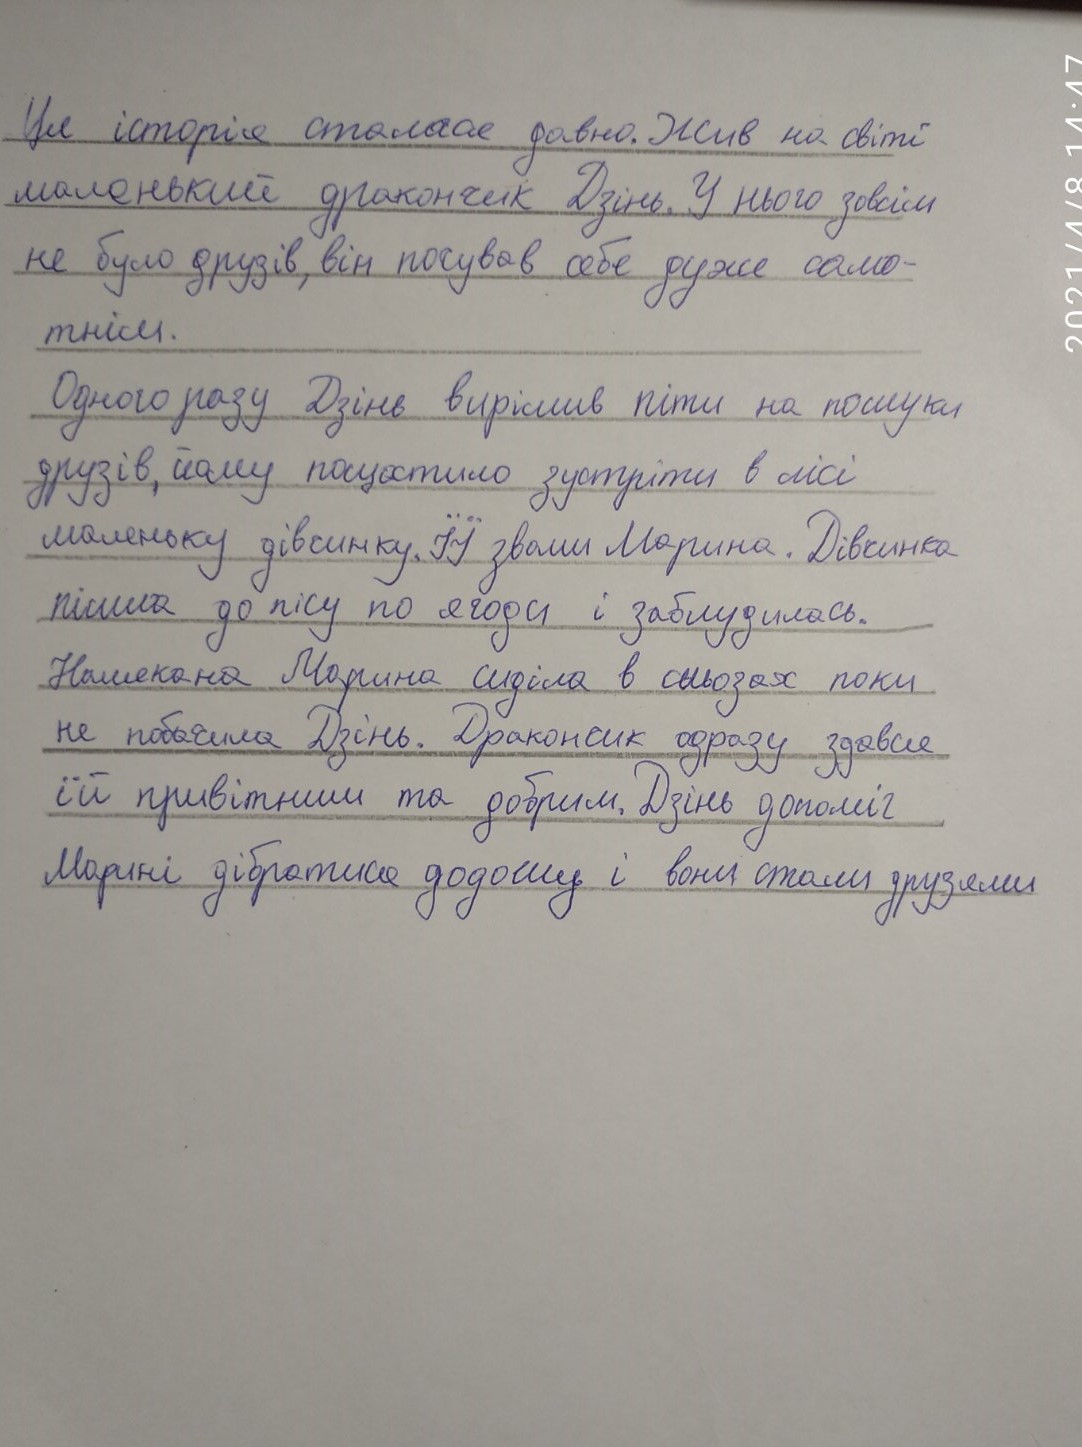 Ця історія сталася давно. Жив на світі
маленький дракончик Дзінь. У нього зовсім
не було друзів, він почував себе дуже само-
тнім.
Одного разу Дзінь вирішив піти на пошуки
друзів, йому пощастило зустріти в лісі
маленьку дівчинку. Її звали Марина. Дівчинка
пішла до лісу по ягоди і заблудилась.
Налякана Марина сиділа в сльозах поки
не побачила Дзінь. Дракончик одразу здався
їй привітним та добрим. Дзінь допоміг
Марині дібратися додому і вони стали друзями
2021/4/8 14:47